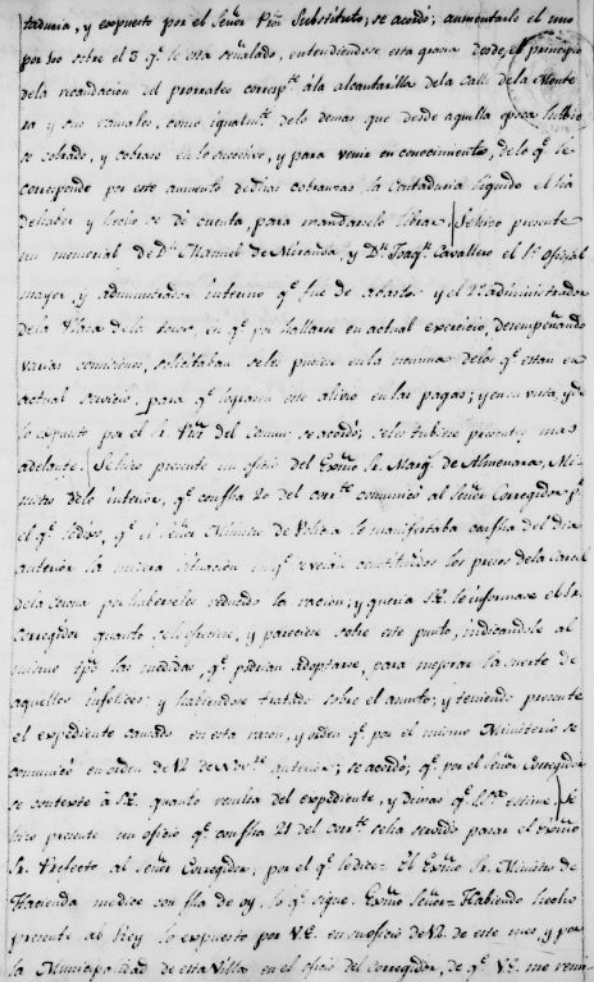 taduria, y expuesto por el Señor Pror Substituto; se acordó; aumentarle el uno
por 100 sobre el 3 q.e le esta señalado, entendiendose esta gracia desde el principio
dela recaudacion del prorrateo corresp.te ála alcantarilla dela calle dela Monte
ra y sus ramales, como igualm.te delo demas que desde aquella epoca hubie
se cobrado, y cobrase en lo succesivo, y para venir en conocimiento, delo q.e le
corresponde por este aumento de dhas cobranzas la Contaduria liquide el ha
dehaber y hecho se dé cuenta, para mandarselo librar. Se hizo presente
un memorial de D.n Manuel de Miranda, y D.n Joaq.n Cavallero el 1.o oficial
mayor, y administrador interino q.e fue de abastos y el 2.o administrador
dela Plaza delos toros, en q.e por hallarse en actual exercicio, desempeñando
varias comisiones, solicitaban seles pusiese en la nomina delos q.e estan en
actual servicio, para q.e lograsen este alivio en las pagas; y en su vista, y de
lo expuesto por el Sr. Pror del Comun se acordó; seles tubiese presentes mas
adelante. Se hizo presente un oficio del Exmo Sr. Marq.s de Almenara, Mi-
nistro delo interior, q.e con fha 20 del corr.te comunicó al Señor Corregidor p.r
el q.e le dixo, q.e el Señor Ministro de Policia le manifestaba con fha del dia
anterior la misera situacion en q.e se veian constituidos los presos dela Carcel
dela Corona por haberseles reducido la racion; y queria S.E. le informase el Sr.
Corregidor quanto se le ofreciese, y pareciese sobre este punto, indicandole al
mismo tpo las medidas, q.e podrian adoptarse, para mejorar la suerte de
aquellos infelices: y habiendose tratado sobre el asunto; y teniendo presente
el expediente causado en esta razon, y orden q.e por el mismo Ministerio se
comunicó en orden de 12 de Nov.re anterior; se acordó; q.e por el Señor Corregidor
se conteste á S.E. quanto resulta del expediente, y demas q.e estime. Se
hizo presente un oficio q.e con fha 21 del corr.te se ha servido pasar el Exmo
Sr. Prefecto al Señor Corregidor; por el q.e le dice= El Exmo Sr. Ministro de
Hacienda me dice con fha de oy, lo q.e sigue. Exmo Señor= Habiendo hecho
presente al Rey lo expuesto por V.E. en su oficio de 12. de este mes, y por
la Municipalidad de esta Villa en el oficio del Corregidor, de q.e V.E. me remi-